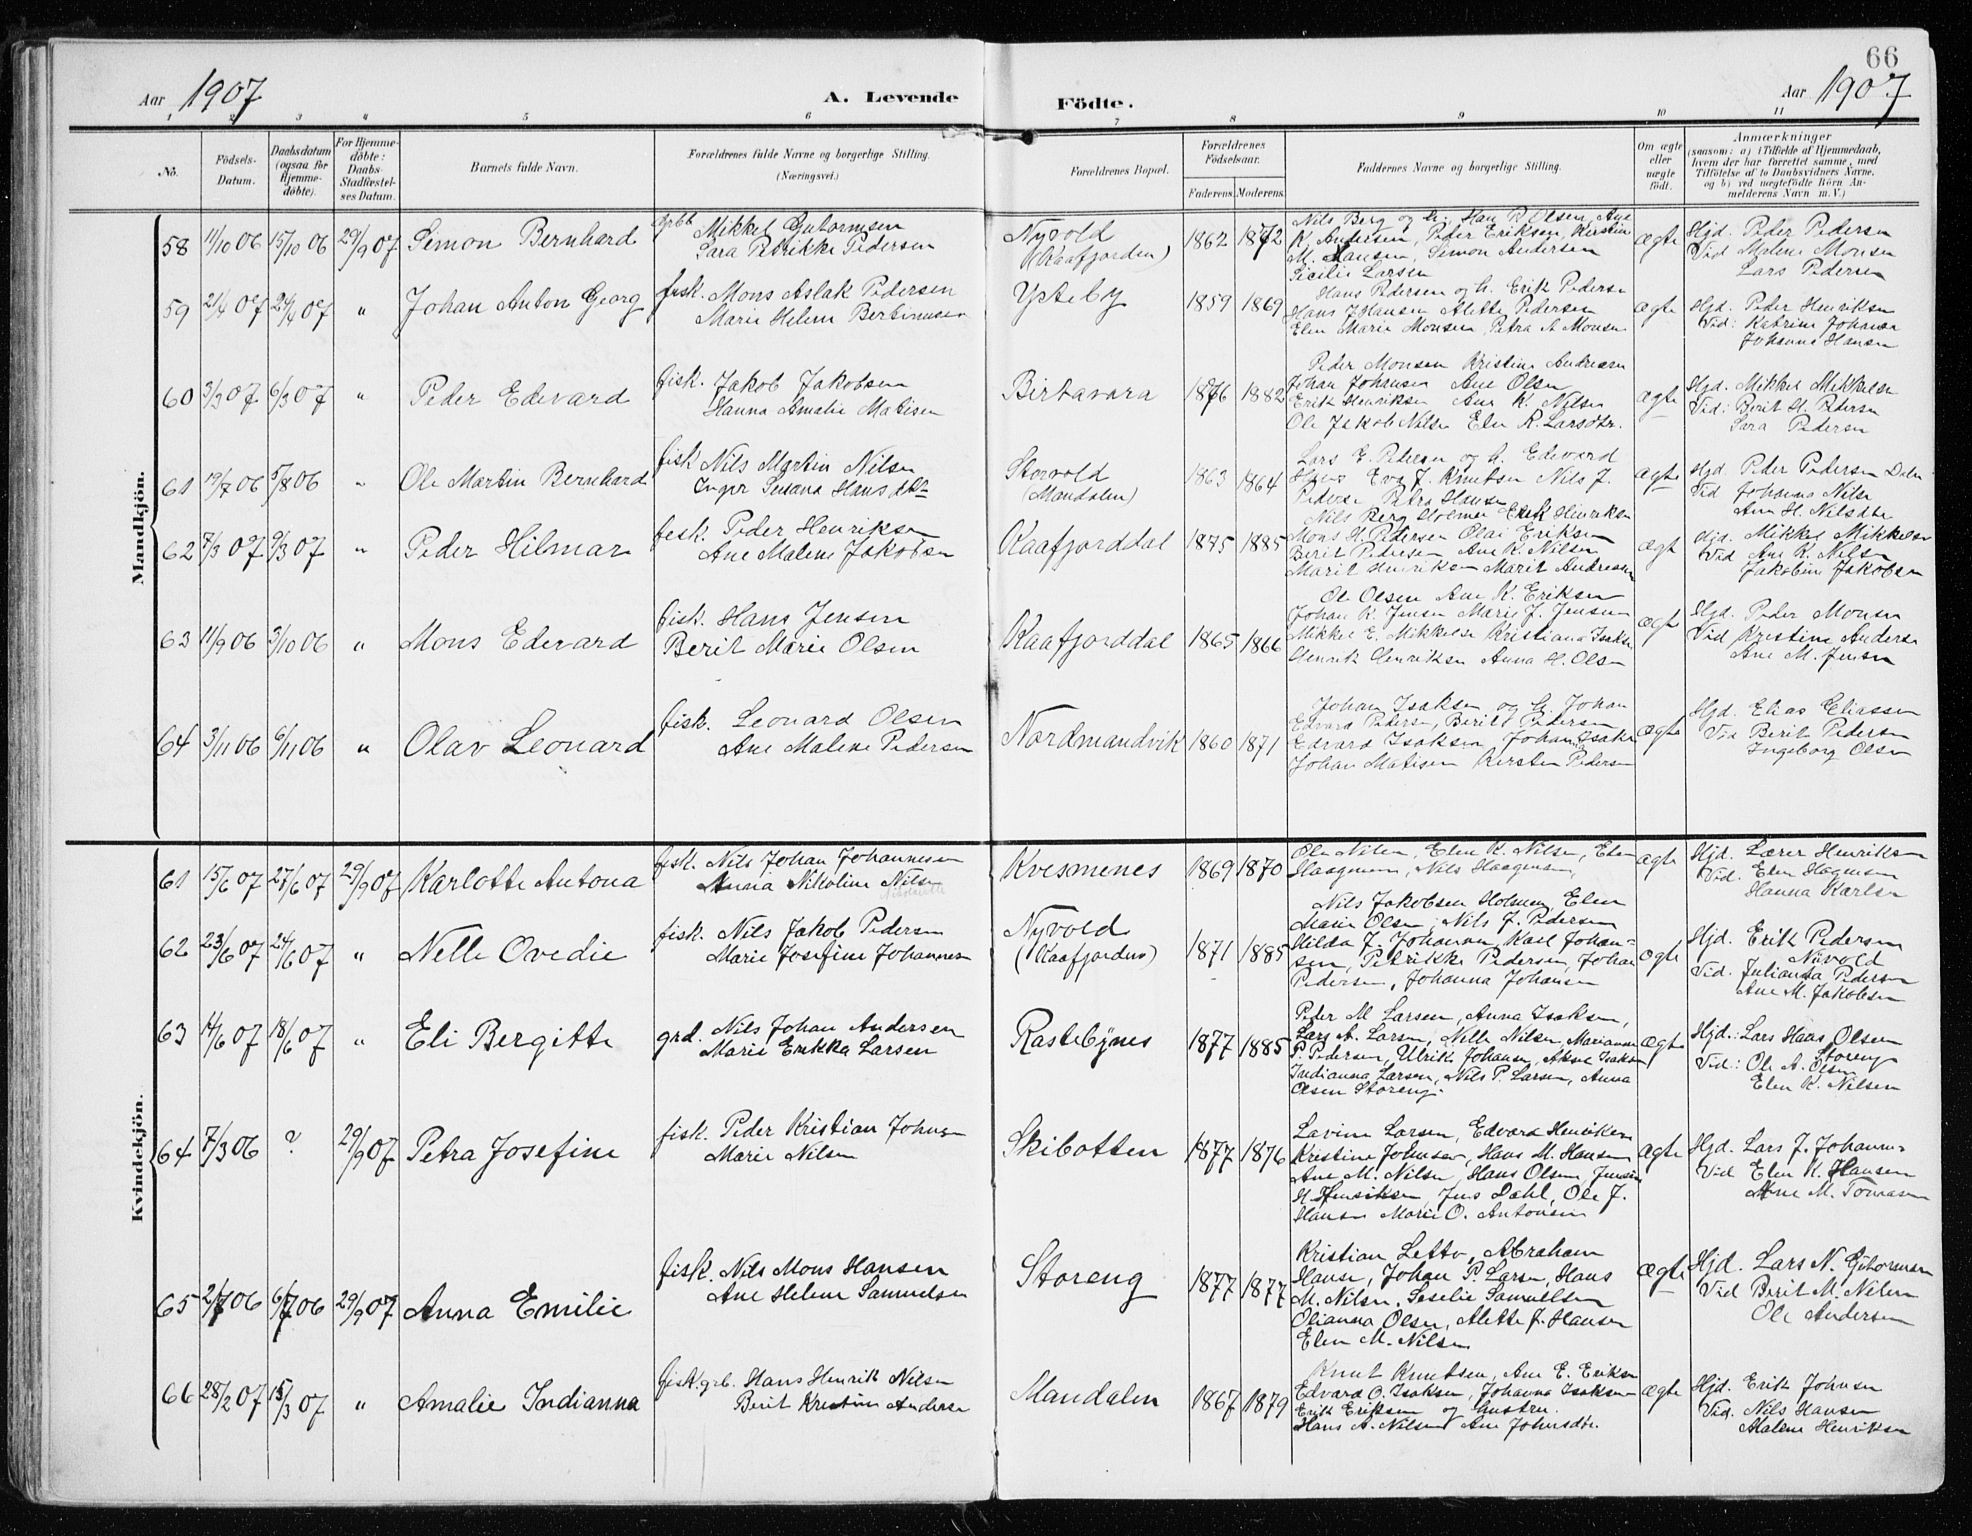 66
Aar 1907
A. Levende
Födte.
Aar 1907
1 2 3 4 5 6 7 8 9 10 11
No.
Födsels-
Datum.
Daabsdatum
(ogsaa for
Hjemme-
döbte).
For Hjemme-
döbte:
Daabs-
Stadfæstel-
ses Datum.
Barnets fulde Navn.
Forældrenes fulde Navne og borgerlige Stilling.
(Næringsvei.)
Forældrenes Bopæl.
Forældrenes
Födselsaar.
Faderens. Moderens.
Faddernes Navne og borgerlige Stilling.
Om ægte
eller
uægte
født.
Anmærkninger
(saasom: a) i Tilfælde af Hjemmedaab,
hvem der har forrettet samme, med
Tilföielse af to Daabsvidners Navne,
og b) ved uægtefödte Börn An-
melderens Navn m. V.)
Mandkjön.
58 11/10 06 15/10 06 29/9 07 Simon Bernhard
Mikkel Guttormsen
Sara Petrikke Pedersen
Nyvold
(Kaafjorden)
1862 1872
Nils Berg og h. Han P. Olsen, Ane
K. Andersen, Peder Eriksen, Kirstine
M. Hansen, Simon Andersen
Sicilie Larsen
ægte
Hjd. Peder Pedersen
Vid Malene Monsen
Lars Pedersen
59 21/4 07 24/4 07 " Johan Anton Georg
fisk. Mons Aslak Pedersen
Marie Helene Bertinussen
Ysteby
1859 1869
Hans Pedersen og h. Erik Pederse
Hans J Hansen Alette Pedersen
Elen Marie Monsen Petra A Monsen
ægte
Hjd. Peder Henriksen
Vid: Katrine Johansen
Johanna Hansen
60 3/3 07 6/3 07 " Peder Edevard
fisk. Jakob Jakobsen
Hanna Amalie Matisen
Birtavara
1876 1882
Peder Monsen Kristine Andreasen
Johan Johansen Ane Olsen
Erik Henriksen Ane K. Nilsen
Ole Jakob Nilsen Elen R. Larsdtr.
ægte
Hjd. Mikkel Mikkelsen
Vid: Berit H. Pedersen
Sara Pedersen
61 19/7 06 5/8 06 " Ole Martin Bernhard
fisk Nils Martin Nilsen
Inger Susana Hansdtr
Storvold
(Mandalen)
1863 1864
Lars E. Pedersen og h. Edevard
Eva J. Knutsen Nils J.
Pedersen Petra Hansen
ægte
Hjd Peder Pedersen Dalen
Vid Johanna Nilsen
Ane H. Nilsdtr
62 7/3 07 9/3 07 " Peder Hilmar
fisk. Peder Henriksen
Ane Malene Jakobsen
Kaafjorddal
1875 1885
Nils Berg Holmen Erik Henriksen
Mons H. Pedersen Olai Eriksen
Berit Pedersen Ane K. Nilsen
Marit Henriksen Marit Andreasen
ægt
Hjd. Mikkel Mikkelsen
Vid Ane K. Nilsen
Jakobine Jakobsen
63 11/9 06 3/10 06 " Mons Edevard
fisk. Hans Jensen
Berit Marie Olsen
Kaafjorddal
1865 1866
Ole Olsen Ane K. Eriksen
Johan K. Jensen Marie J. Jensen
Mikkel E. Mikkelsen Kristiana Isaksen
Henrik Henriksen Anna H. Olsen
ægte
Hjd. Peder Monsen
Vid Kristine Andersen
Ane M. Jensen
64 3/11 06 6/11 06 " Olav Leonard
fisk. Leonard Olsen
Ane Malene Pedersen
Nordmandvik
1860 1871
Johan Isaksen og h. Johan
Edvard Pedersen, Berit Pedersen
Edvard Isaksen, Johanna Isaksen
Johan Matisen Kirsten Pedersen
ægte
Hjd. Elias Eliassen
Vid Berit Pedersen
Ingeborg Olsen
Kvindekjön.
61 15/6 07 27/6 07 29/9 07 Karlotte Antona
fisk. Nils Johan Johannesen
Anna Nikoline Nilsen
Kvesmenes
1869 1870
Ole Nilsen, Elen K. Nilsen, Elen
Haagensen, Nils Haagensen,
ægte
Hjd. Lærer Henriksen
Vid. Elen Hagensen
Hanna Karlsen
62 23/6 07 24/6 07 " Nelle Ovedie
fisk. Nils Jakob Pedersen
Marie Josefine Johannesen
Nyvold
(Kaafjorden)
1871 1885
Nils Jakobsen Holmen, Elen
Marie Olsen, Nils J. Pedersen
Hilda J. Johannen, Karl Johan=
sen, Petrikke Pedersen, Johan
Pedersen, Johanna Johansen
ægte
Hjd. Erik Pedersen
Nivold
Vid. Julianna Pedersen
Ane M. Jakobsen
63 14/6 07 18/6 07 " Eli Bergitte
grd. Nils Johan Andersen
Marie Erikka Larsen
Rastebynes
1877 1885
Peder M Larsen, Anna Isaksen,
Lars A. Larsen, Nelle Nilsen, Marianne
P. Pedersen, Ulrik Johansen, Aksel Isaksen
Indianna Larsen, Nils P. Larsen, Anna
Olsen Storeng.
ægte
Hjd: Lars Hans Olsen
Storeng
Vid: Ole A. Olsen
Elen K. Nilsen
64 7/3 06 ? 29/9 07 Petra Josefine
fisk. Peder Kristian Johnsen
Marie Nilsen
Skibotten
1877 1876
Lavine Larsen, Edvard Henriksen
Kristine Johnsen, Hans M. Hansen
Ane M. Nilsen, Hans Olsen, Jensine
H. Henriksen, Jens Dahl, Ole J.
Hansen Marie O. Antonsen
ægte
Hjd. Lars J. Johann=
Vid Elen K. Hansen
Ane M. Tomasen
65 2/7 06 6/7 06 29/9 07 Anna Emilie
fisk. Nils Mons Hansen
Ane Helene Samuelsen
Storeng
1877 1877
Kristian Letto, Abraham
Hansen, Johan P. Larsen, Hans
M. Nilsen, Seselie Samuelsen
Olianna Olsen, Alette J. Hansen
Elen M. Nilsen
ægte
Hjd. Lars N. Guttormsen
Vid Berit M. Nilsen
Ole Andersen
66 28/2 07 15/3 07 " Amalie Indianna
fisk. grb. Hans Henrik Nilsen
Berit Kristine Andersen
Mandalen
1867 1879
Knut Knutsen, Ane E. Eriksen
Edvard O. Isaksen, Johanna Isaksen
Erik Eriksen og hustru.
Hans A. Nilsen Ane Johnsdtr.
ægte
Hjd. Erik Johnsen
Vid. Nils Hansen
Malene Henriksen